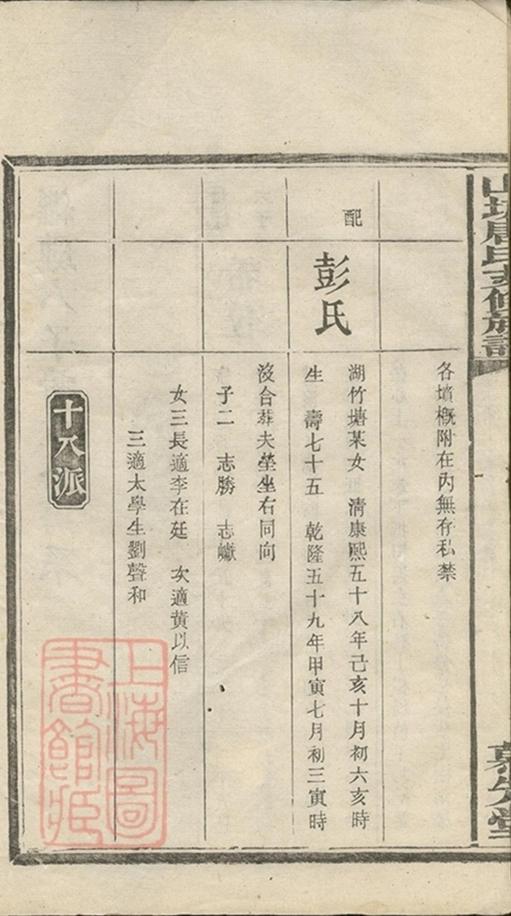 氏修族譜
先堂
各墳概附在內無存私禁
配
彭氏
湖竹塘某女 清康熙五十八年己亥十月初六亥時
生 壽七十五 乾隆五十九年甲寅七月初三寅時
沒合葬夫塋坐右同向
子二 志勝 志巘
女三長適李在廷 次適黃以信
三適太學生劉聲和
十八派
上海圖
書館藏